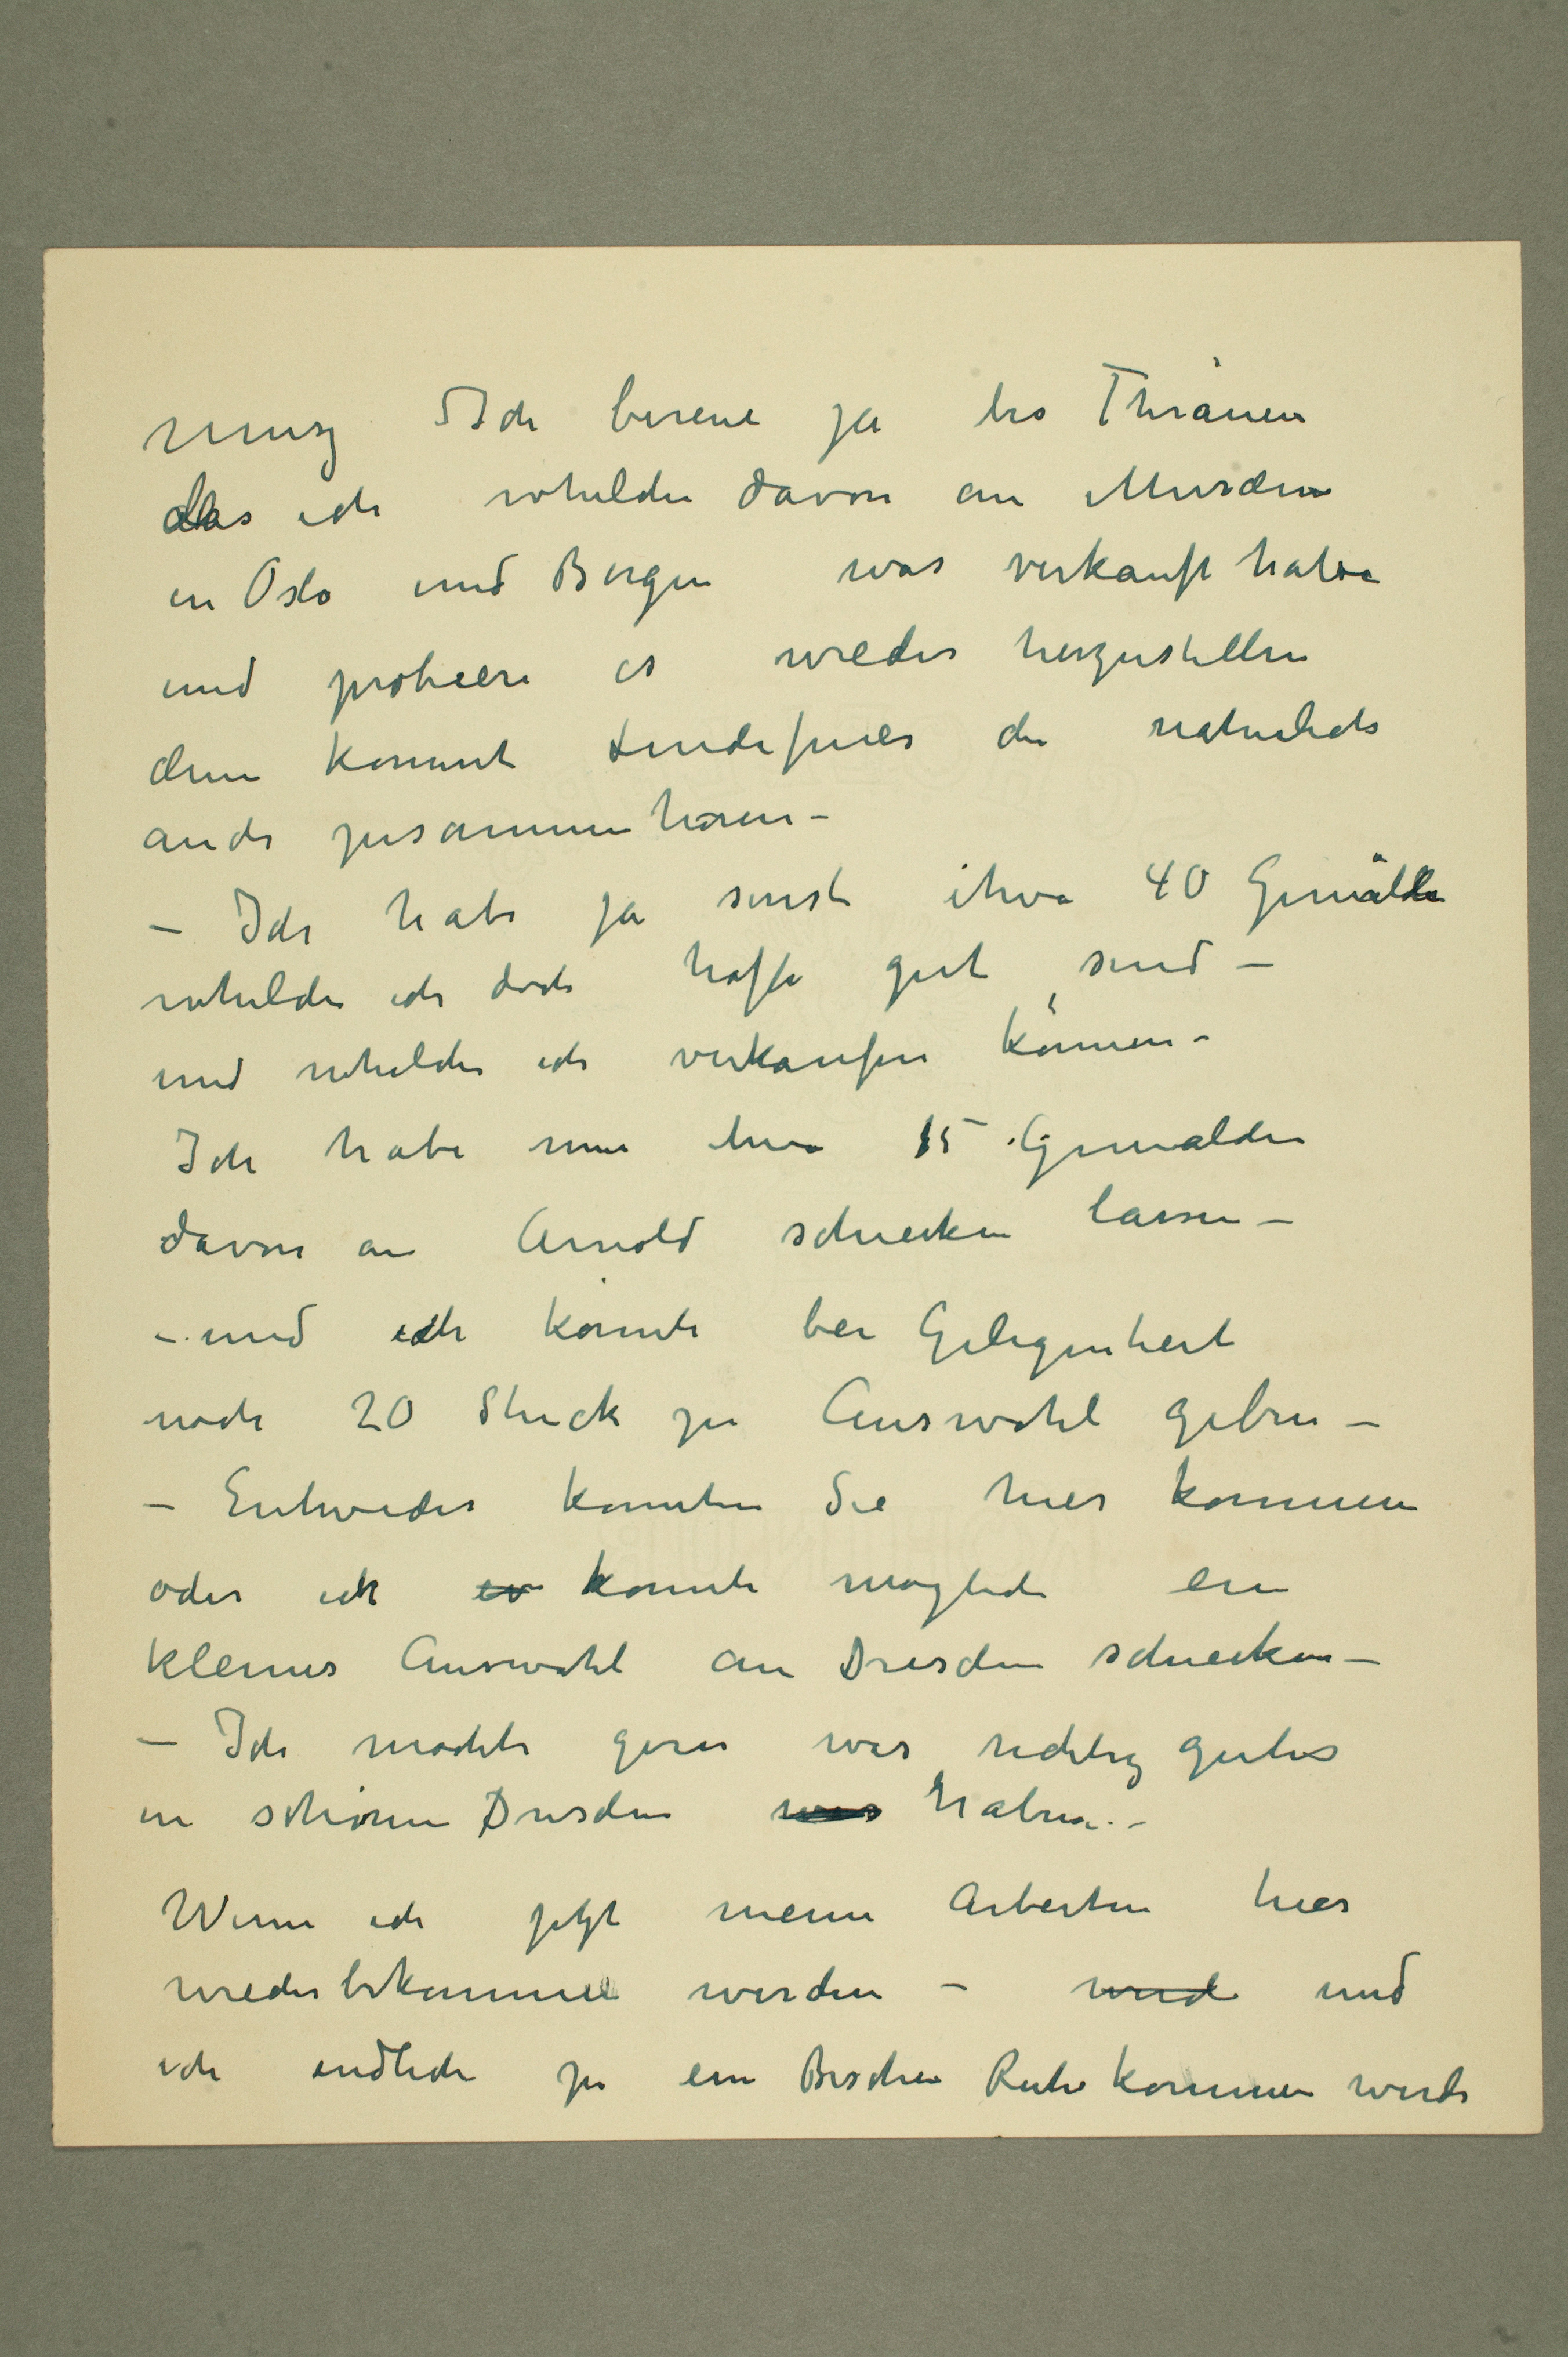 muss Ich bereue ja bis Thränen
das ich whelche davon an Museen
in Oslo und Bergen was verkauft habe
und probiere es wieder herzustellen
denn kommt Lindefries die naturlich
auch zusammen hören –
– Ich habe ja sonst ethva 40 Gemälde
whelche ich doch hoffe gut sind –
und whelche ich verkaufen können –
Ich habe nun ethva 15 Gemälden
davon an Arnold schiecken lassen –
– und ich könnte bei Gelegenheit
noch 20 Stuck zu Auswahl geben –
– Entweder konnten Sie hier kommen
oder ich konnte moglich ein
kleines Auswahl an Dresden schiecken –
– Ich mochte gern was richtig gutes
in schönen Dresden was haben. –
Wenn ich jetzt meine Arbeiten hier
wiederbekommen werden – werde und
ich endlich zu ein Bischen Ruhe kommen werde